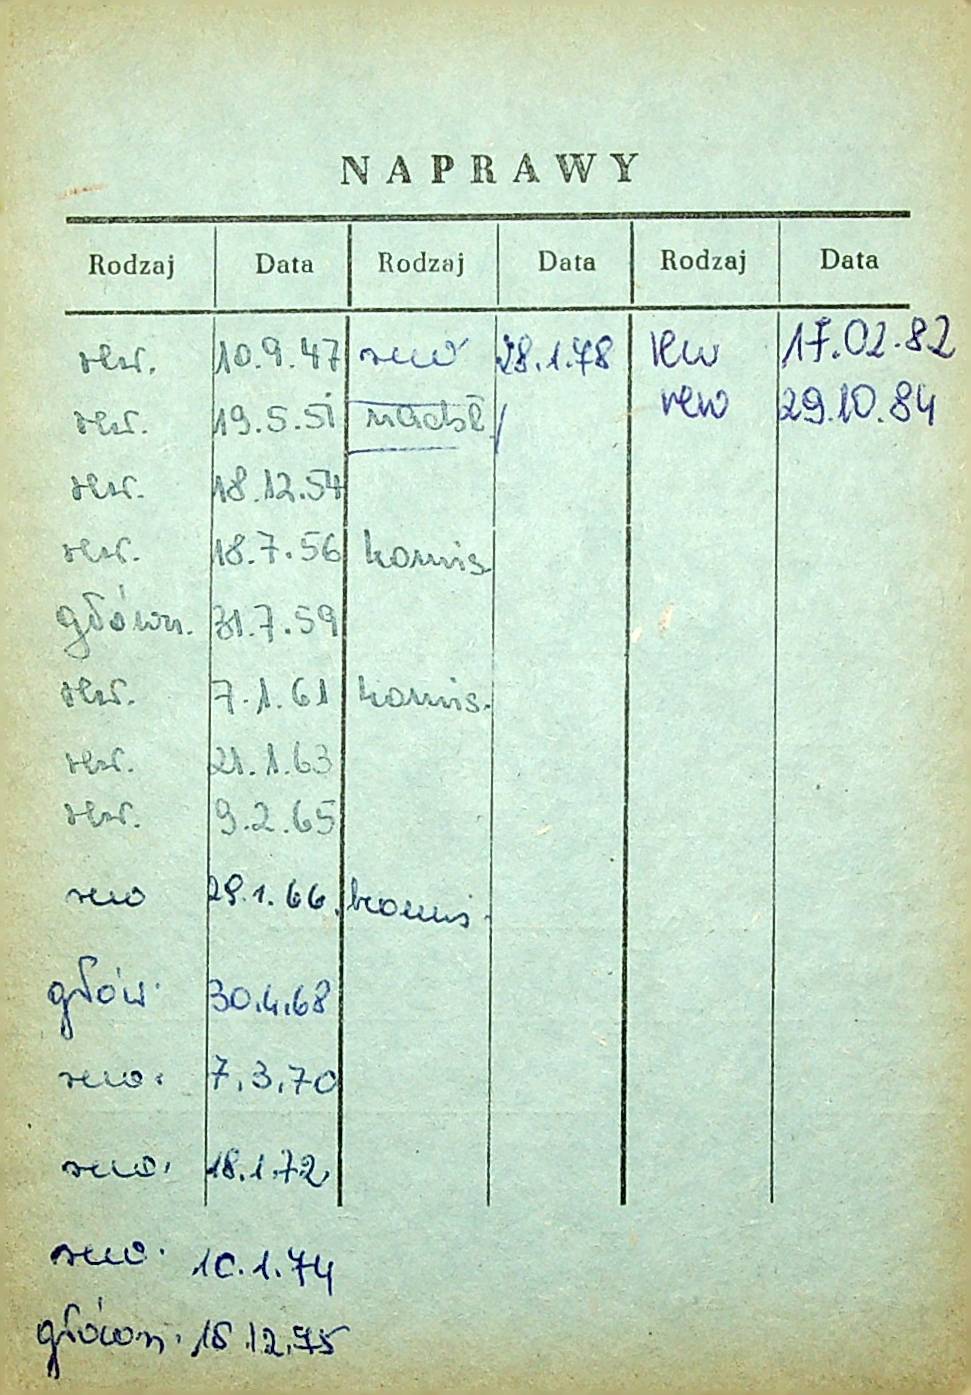 NAPRAWY
Rodzaj Data Rodzaj Data Rodzaj Data
rew. 10.9.47 rew 28.1.78 rew 17.02.82
rew. 19.5.51 nadsł. rew 29.10.84
rew. 18.12.54
rew. 18.7.56 komis
główn. 31.7.59
rew. 7.1.61 komis.
rew. 21.1.63
rew. 9.2.65
rew 29.1.66. komis.
głów. 30.4.68
rew. 7.3.70
rew. 18.1.72
rew. 10.1.74
główn. 15.12.75